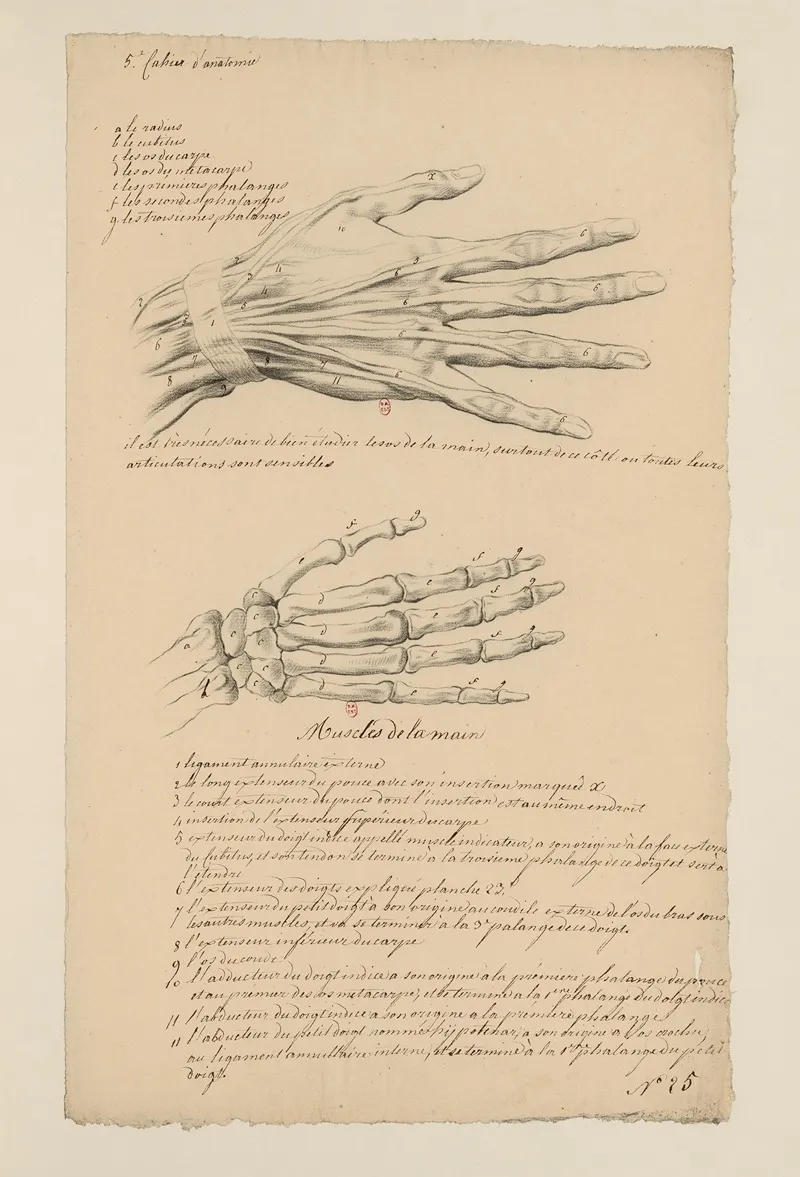 5.e Cahier d'anatomie
a le radius
b le cubitus
c les os du carpe
d les os du métacarpe
e les premieres phalanges
f les secondes phalanges
g les troisiemes phalanges
il est très nécessaire de bien étudier les os de la main, surtout de ce côté ou toutes leurs
articulations sont sensibles
Muscles de la main
1 ligament annulaire externe
2 le long extenseur du pouce avec son insertion marqué X
3 le court extenseur du pouce dont l'insertion est au même endroit
4 insertion de l'extenseur supérieur du carpe
5 extenseur du doigt indice appellé muscle indicateur, a son origine à la face externe
du Cubitus, et son tendon se termine à la troisieme phalange de ce doigt et sert à
l'étendre
6 l'extenseur des doigts expliqué planche 23.
7 l'extenseur du petit doigt a son origine au condile externe de l'os du bras sous
les autres muscles, et va se terminer à la 3e palange de ce doigt.
8 l'extenseur inférieur du carpe
9 l'os du coude
10 l'adducteur du doigt indice a son origine à la premiere phalange du pouce
et au premier des os métacarpe, et se termine a la 1ere phalange du doigt indice
11 l'abducteur du doigt indice a son origine a la premiére phalange
11 l'abducteur du petit doigt nommé hypotenar, a son origine a l'os crochu,
au ligament annullaire interne, et se termine à la 1ere phalange du petit
doigt.
N° 25